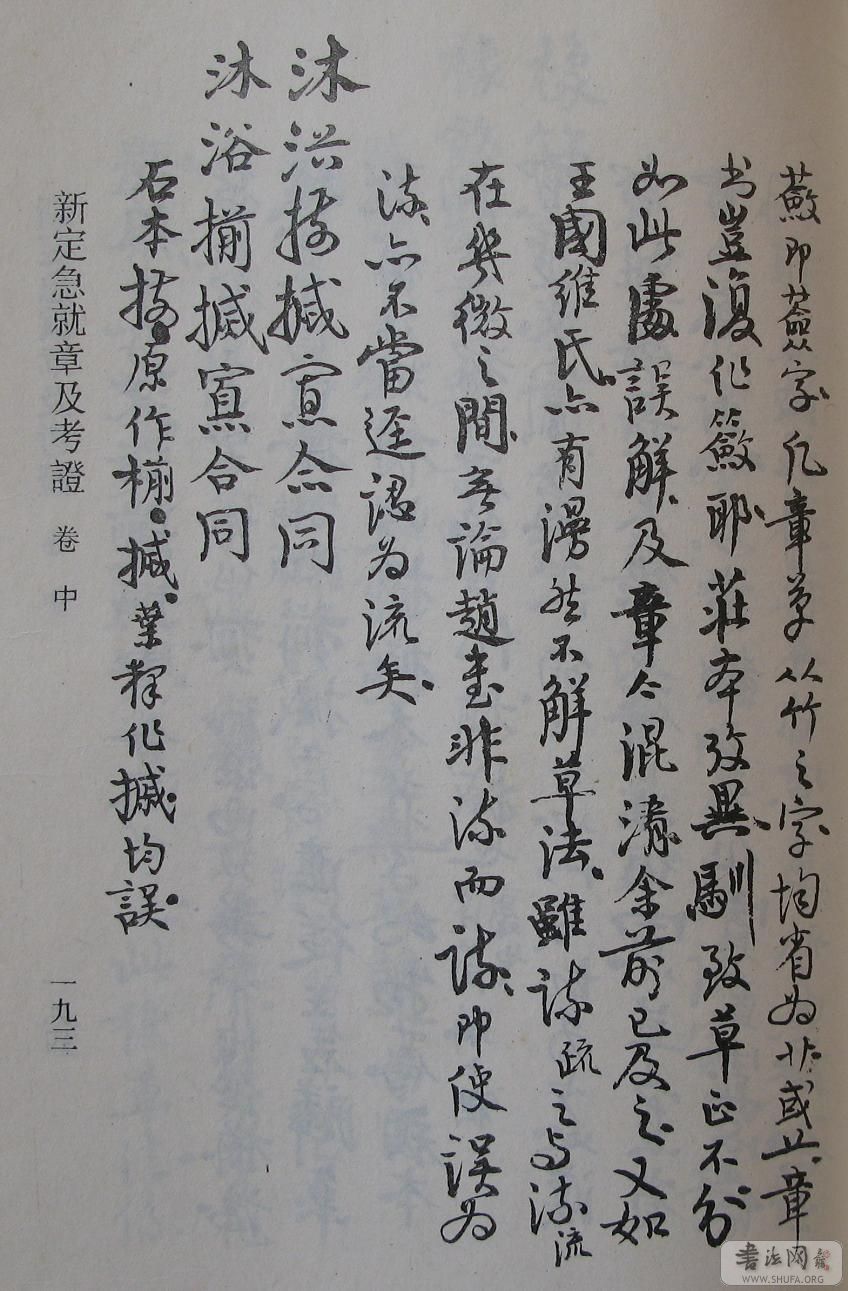 蘞即薟字凡章草从竹之字均省为艹或䒑章
书豈復作簽耶莊本攷異馴致草正不分
如此處誤解及章今混淆余前已及之又如
王國維氏亦有漫然不解草法雖疏之与流
在幾微之間無論趙書非流而疏即使誤为
流亦不當逕認为流矣
沐浴揃搣寡合同
沐浴揃搣寡合同
石本揃原作椾搣葉釋作搣均誤
新定急就章及考證 卷中
一九三
書法网
WWW.SHUFA.ORG